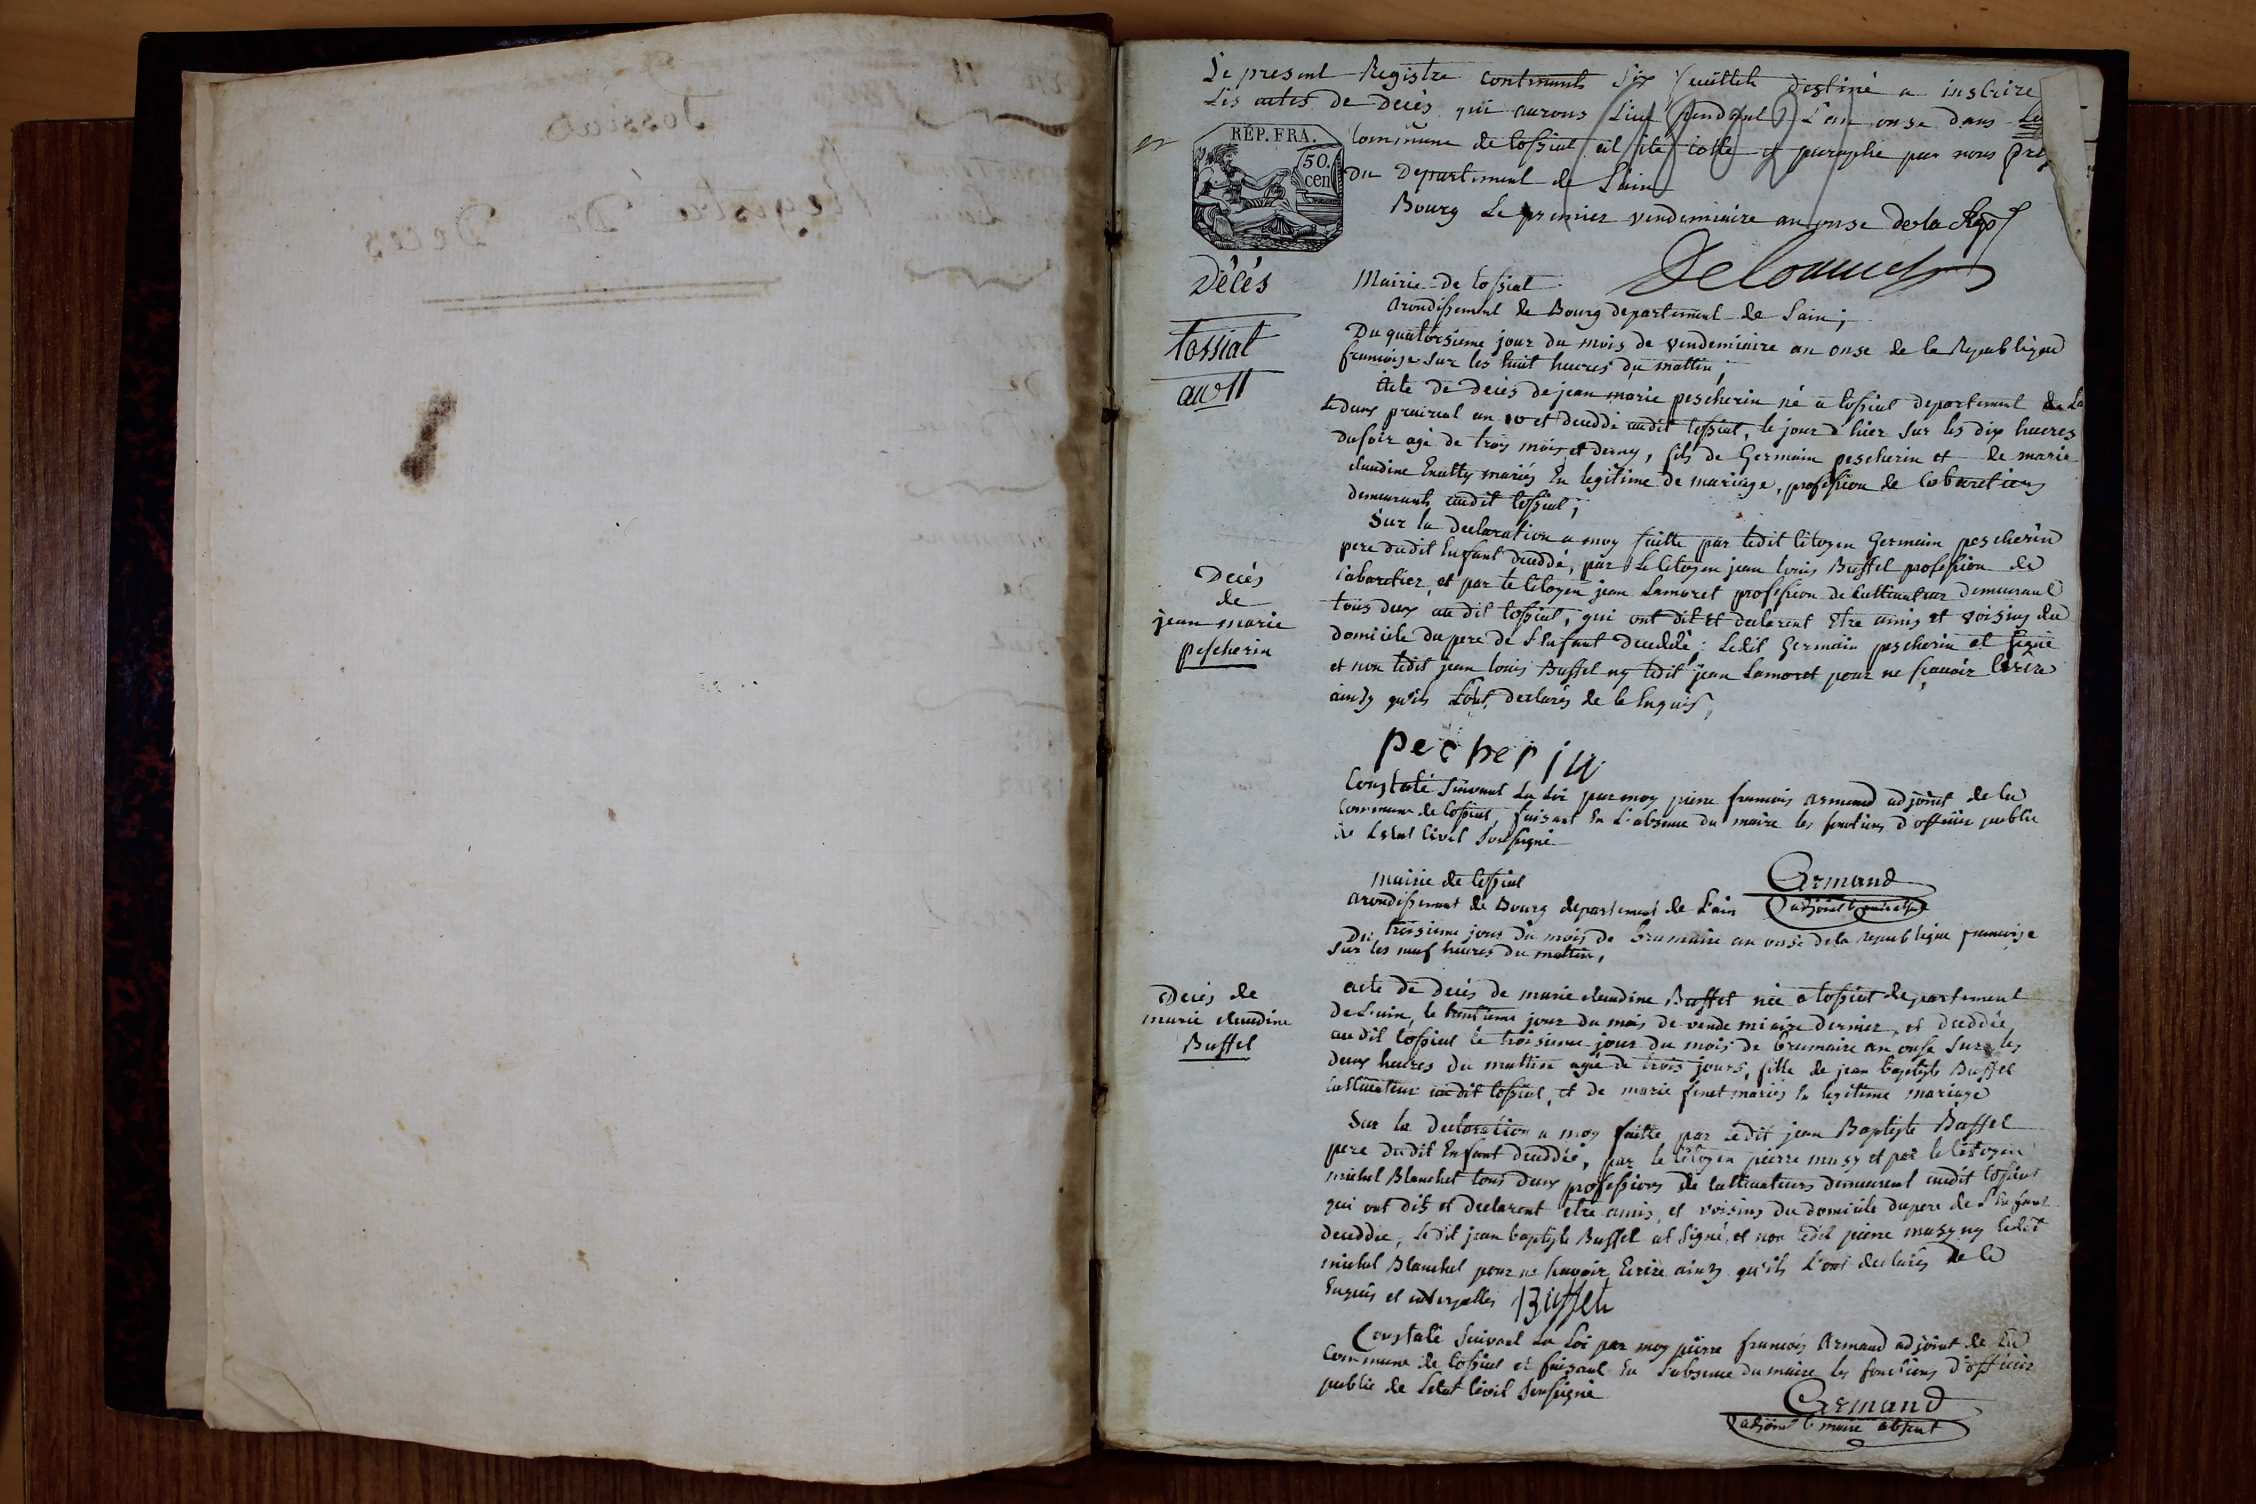 Le present Registre contenants six feuillets destiné a instrire
Les actes de deces qui aurons Lieu pendant L'an onse dans La
Commune de tossiat ait été cotté et paraphé par nous pre
Du Departement de L'ain
Bourg Le premier vendemiaire an onse de la Rep
RÉP. FRA.
50.
cen
Décés
tossiat
an 11
Mairie de tossiat
arondissement de Bourg departement de Lain;
Du quatorsieme jour du mois de vendemiaire an onse de la Republique
francoise sur les huit heures du mattin;
Acte de deces de jean marie pescherin né a tossiat departement de La
le deux prairial an 10 et deceddé audit tossiat, le jour d'hier sur les dix heures
du soir agé de trois mois et demy, fils de Germain pescherin et de marie
claudine mariés En legitime de mariage, profession de cabaretiers
demeurants audit tossiat;
Sur la declaration a moy faitte par ledit Citoyen Germain pescherin
pere dudit Enfant deceddé, par Le Citoyen jean louis Buffet profession de
cabaretier, et par le Citoyen jean Lamoret profession de cultivateur demeurant
tous deux audit tossiat, qui ont dit et declarent etre amis et voisins du
domicile du pere de L'Enfant deceddé; Ledit Germain pescherin at signé
et non ledit jean louis Buffet ny ledit jean Lamoret pour ne sçavoir Ecrire
ainsy qu'ils L'ont declarés de le Enquis,
Decés
de
jean marie
pescherin
pecherin
Constaté suivant La Loi par moy pierre francois armand adjoint de la
commune de tossiat, faisant En L'absence du maire les fonctions d'officier public
de L'etat Civil soussigné
Armand
adjoint le maire absent
Mairie de tossiat
arondissement de Bourg departement de L'ain
Du troisieme jour du mois de brumaire an onse de la republique francoise
sur les neuf heures du mattin,
Decés de
marie claudine
Buffet
acte de decés de marie claudine Buffet née a tossiat departement
de L'ain, le trentieme jour du mois de vendemiaire dernier, et deceddée
audit tossiat le troisieme jour du mois de brumaire an onse sur les
deux heures du mattin agée de trois jours, fille de jean baptiste Buffet
cultivateur audit tossiat, et de marie finet mariés En legitime mariage
Sur la declaration a moy faitte par ledit jean Baptiste Buffet
pere dudit Enfant deceddée, par le Citoyen pierre musy et par le Citoyen
michel Blanchet tous deux professions de cultivateurs demeurant audit tossiat
qui ont dits et declarent etre amis, et voisins du domicile du pere de L'Enfant
deceddée, Ledit jean baptiste Buffet at signé, et non ledit pierre musy ny ledit
michel Blanchet pour ne sçavoir Ecrire ainsy qu'ils L'ont declarés de le
Enquis et interpellés Buffet
Constaté suivant La Loi par moy pierre francois Armand adjoint de la
Commune de tossiat et faisant En L'absence du maire les fonctions d'officier
public de L'etat Civil soussigné
Armand
adjoint le maire absent